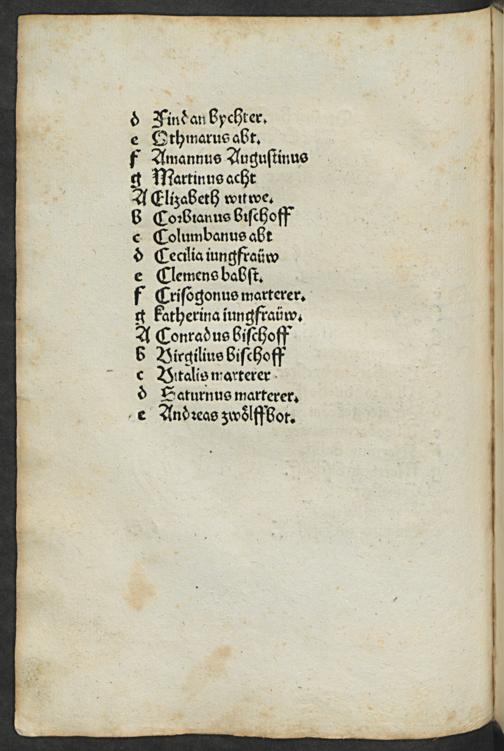 d Findan bychter.
e Othmarus abt.
f Amannus Augustinus
g Martinus acht
A Elizabeth witwe.
b Corbianus bischoff
c Columbanus abt
d Cecilia iungfraüw
e Clemens babst.
f Crisogonus marterer.
g katherina iungfraüw.
A Conradus bischoff
b Virgilius bischoff
c Vitalis marterer
d Saturnus marterer.
e Andreas zwölffbot.